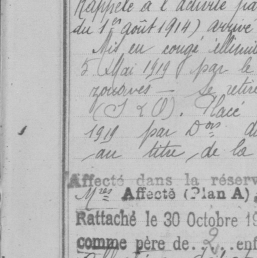 Rappelé à l'activité pa
du 1er août 1914) arrivé
Mis en congé illimité
5 Mai 1919 par le
zouaves – se retire
(S & O). Placé
1919 par Don d
au titre de la
Affecté dans la réserv
Mres Affecté (Plan A)
Rattaché le 30 Octobre 19
comme père de 2 enf